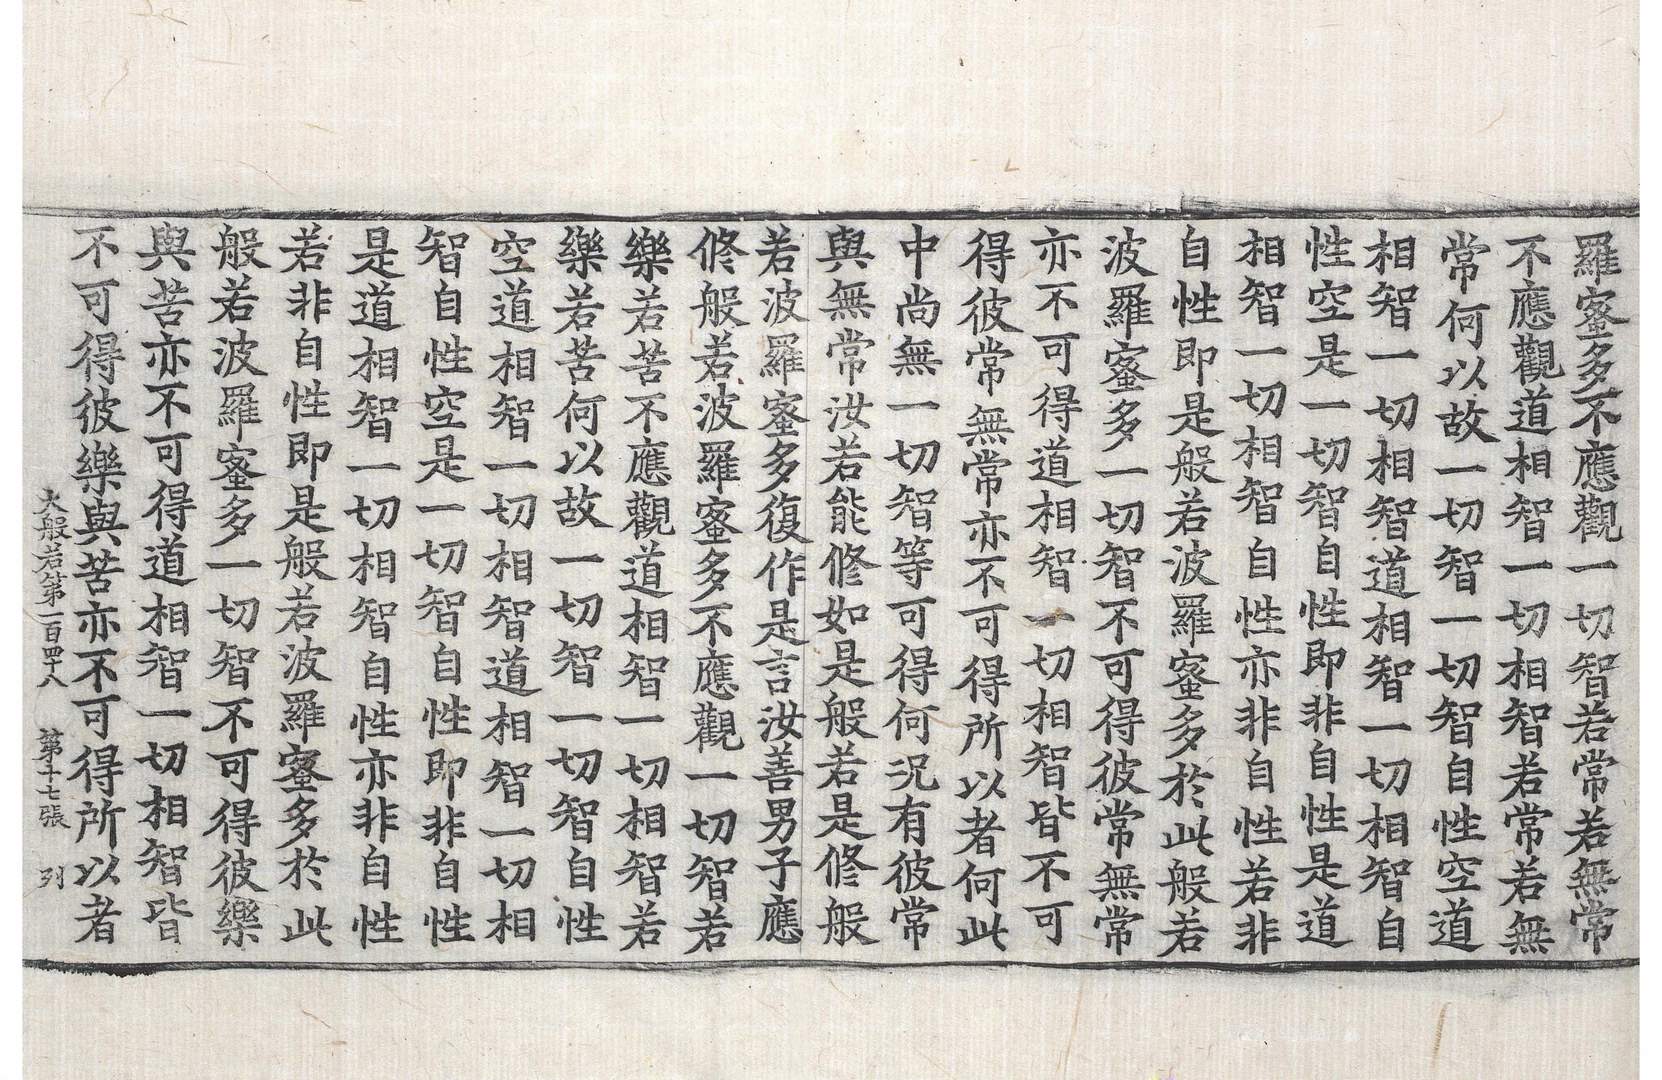 羅蜜多不應觀一切智若常若無常
不應觀道相智一切相智若常若無
常何以故一切智一切智自性空道
相智一切相智道相智一切相智自
性空是一切智自性即非自性是道
相智一切相智自性亦非自性若非
自性即是般若波羅蜜多於此般若
波羅蜜多一切智不可得彼常無常
亦不可得道相智一切相智皆不可
得彼常無常亦不可得所以者何此
中尚無一切智等可得何況有彼常
與無常汝若能修如是般若是修般
若波羅蜜多復作是言汝善男子應
修般若波羅蜜多不應觀一切智若
樂若苦不應觀道相智一切相智若
樂若苦何以故一切智一切智自性
空道相智一切相智道相智一切相
智自性空是一切智自性即非自性
是道相智一切相智自性亦非自性
若非自性即是般若波羅蜜多於此
般若波羅蜜多一切智不可得彼樂
與苦亦不可得道相智一切相智皆
不可得彼樂與苦亦不可得所以者
大般若第一百四十八 第十七張 列